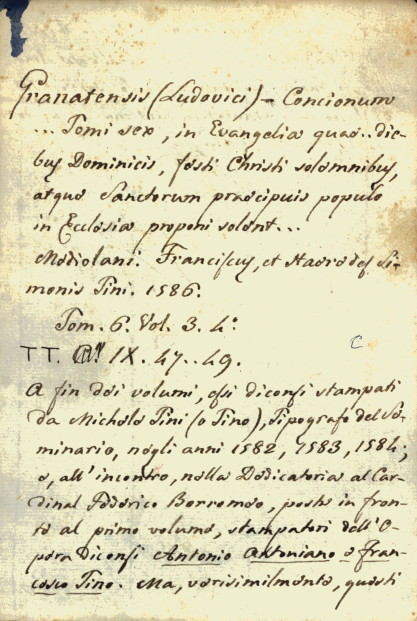 Granatensis (Ludovici) - Concionum
... Tomi sex, in Evangelia quae.. die-
bus Dominicis, festi Christi solemnibus,
atque Sanctorum praecipuis populo
in Ecclesia proponi solent...
Mediolani. Franciscus, et Haeredes Si-
monis Tini. 1586.
Tom. 6. Vol. 3. 4.°
C
TT. IX. 47..49.
A fin dei volumi, essi diconsi stampati
da Michele Tini (o Tino), Tipografo del Se-
minario, negli anni 1582, 1583, 1584;
e, all'incontro, nella Dedicatoria al Car-
dinal Federico Borromeo, posta in fron-
te al primo volume, stampatori dell'O-
pera diconsi Antonio Antoniano e Fran-
cesco Tino. Ma, verisimilmente, questi